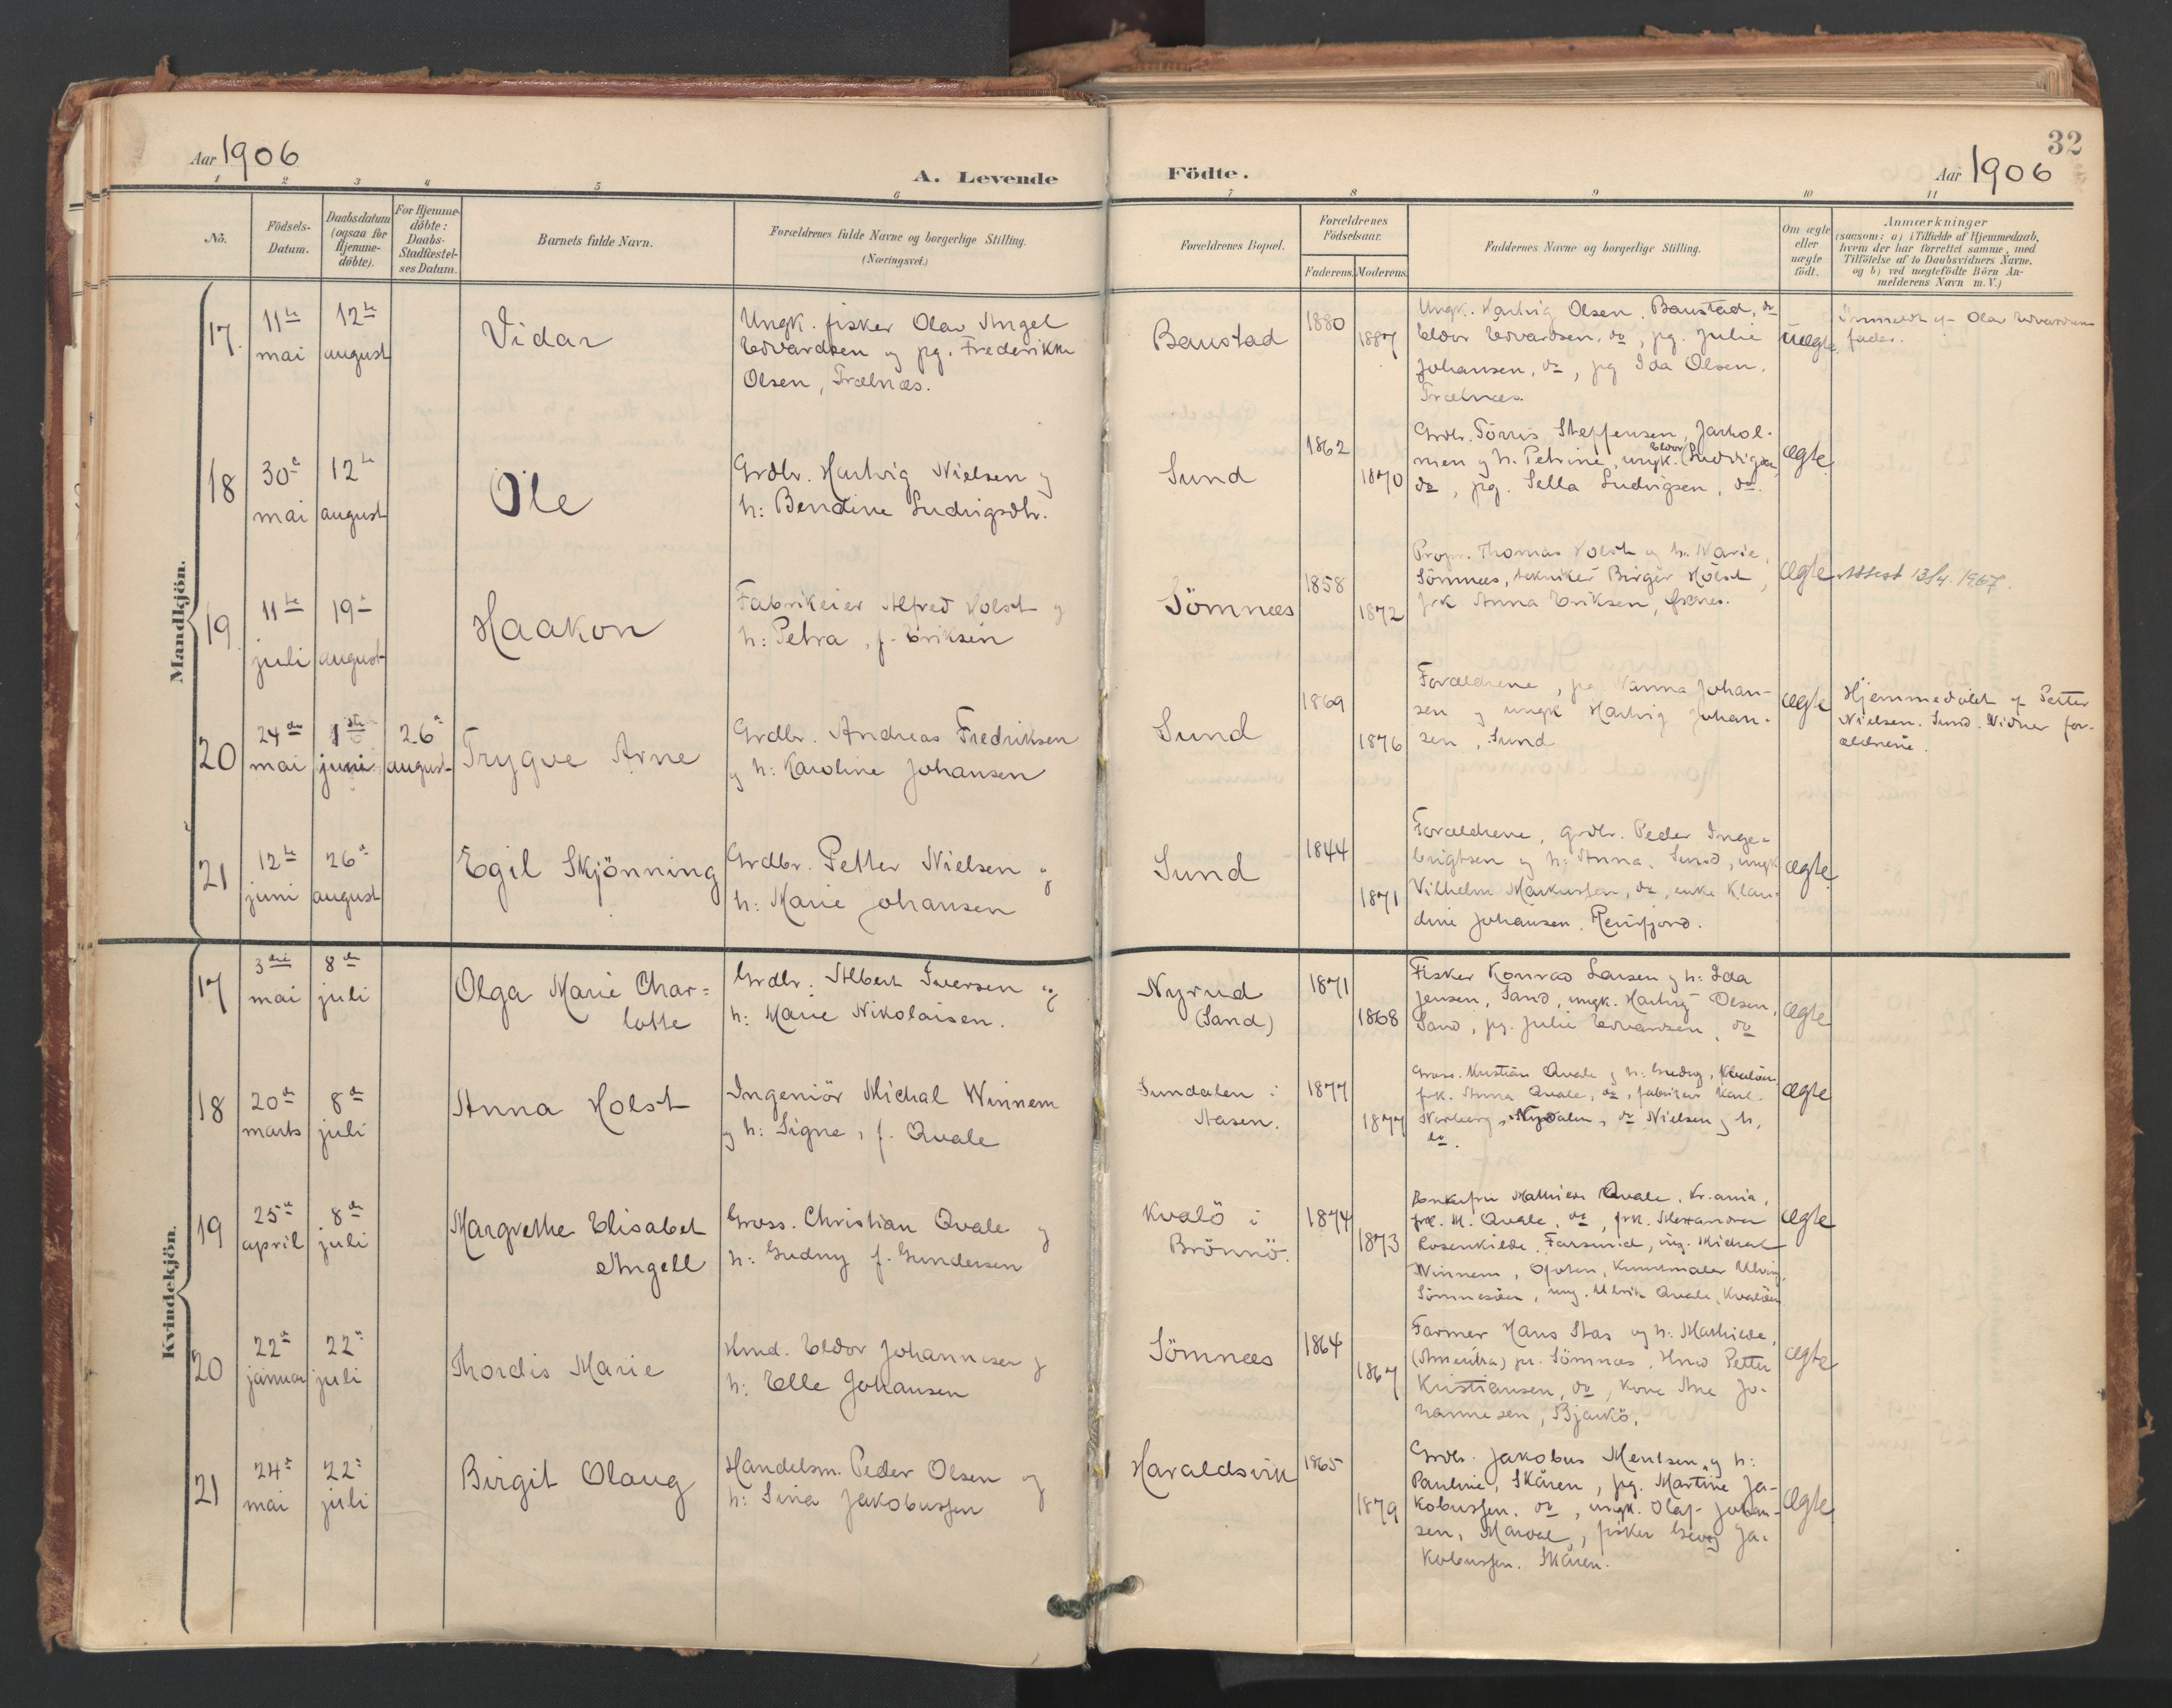 Aar 1906
A. Levende
Födte.
32
Aar 1906
1 2 3 4 5 6 7 8 9 10 11
No.
Födsels-
Datum.
Daabsdatum
(ogsaa for
Hjemme-
döbte).
For Hjemme-
döbte:
Daabs-
Stadfæstel-
ses Datum.
Barnets fulde Navn.
Forældrenes fulde Navne og borgerlige Stilling.
(Næringsvei.)
Forældrenes Bopæl.
Forældrenes
Födselsaar.
Faderens. Moderens.
Faddernes Navne og borgerlige Stilling.
Om ægte
eller
uægte
födt.
Anmærkninger
(saasom: a) i Tilfælde af Hjemmedaab,
hvem der har forrettet samme, med
Tilföielse af to Daabsvidners Navne,
og b) ved uægtefödte Börn An-
melderens Navn m. V.)
Mandkjön.
17
11te
mai
12te
august
Vidar
Ungk. fisker Olav Angel
Edvardsen og pg. Frederikke
Olsen, Trælnæs.
Baustad
1880
1887
Ungk. Hartvig Olsen, Baustad, do
Eldor Edvardsen, do, pg. Julie
Johansen, do, pg Ida Olsen,
Trælnæs.
uægte
Anmeldt af Olav Edvardsen
fader.
18
30e
mai
12te
august
Ole
Grdbr. Hartvig Nielsen og
h: Bendine Ludvigsdtr.
Sund
1862
1870
Grdbr. Törris Steffensen, Jarhol-
men og h. Petrine, ungk. Eldor Ludvigsen,
do, pg. Sella Ludvigsen, do.
ægte
19
11te
juli
19e
august
Haakon
Fabrikeier Alfred Holst og
h: Petra, f. Eriksen
Sömnæs
1858
1872
Propr. Thomas Holst og h. Marie,
Sömnæs, tekniker Birger Holst,
frk Anna Eriksen,
ægte
Attest 13/4. 1967.
20
24de
mai
1ste
juni
26e
august
Trygve Arne
Grdbr. Andreas Fredriksen
og h: Karoline Johansen
Sund
1869
1876
Forældrene, pg. Hanna Johan-
sen og ungk Hartvig Johan-
sen, Sund
ægte
Hjemmedöbt af Petter
Nielsen. Sund. Vidner for-
ældrene.
21
12te
juni
26e
august
Egil Skjönning
Grdbr. Petter Nielsen og
h: Marie Johansen
Sund
1844
1871
Forældrene, grdbr. Peder Inge-
brigtsen og h: Anna, Sund, ungk
Vilhelm Markussen, do, enke Klau-
dine Johansen. Reinfjord.
ægte
Kvindekjön.
17
3die
mai
8de
juli
Olga Marie Char-
lotte
Grdbr. Albert Iversen og
h: Marie Nikolaisen.
Nyrud
(Sand)
1871
1868
Fisker Konrad Larsen og h: Ida
Jensen, Sand, ungk. Hartvig Olsen,
Sand, pg. Julie Edvardsen, do
ægte
18
20de
marts
8de
juli
Anna Holst
Ingeniör Michal Winnem
og h: Signe, f. Qvale
Sundalen i
Aasen.
1877
1877
Gross. Kristian Qvale og h: Gudny, Kvalöen,
frk. Anna Qvale, do, fabrikeier Karl
Norberg, Nydalen, do Nielsen og h,
do.
ægte
19
25e
april
8de
juli
Margrethe Elisabet
Angell
Gross. Christian Qvale og
h: Gudny f. Gundersen
Kvalö i
Brönnö.
1874
1873
Enkefru Mathilde Qvale, Kr.ania,
frk. M. Qvale, do, frk. Alexandra
Rosenkilde, Farsund, ing. Michal
Winnem, Ofoten, Kunstmaler Ulving,
Sömnesöen, ing. Ulrik Qvale, Kvalöen
ægte
20
22e
januar
22e
juli
Thordis Marie
Hmd. Eldor Johannesen og
h: Elle Johansen
Sömnæs
1864
1867
Farmer Hans Aas og h: Mathilde,
(Amerika) pr. Sömnæs, Hmd Petter
Kristiansen, do, kone Ane Jo-
hannesen, Bjarkö.
ægte
21
24e
mai
22e
juli
Birgit Olaug
Handelsm. Peder Olsen og
h: Sina Jakobussen
Haraldsvik
1865
1879
Grdbr. Jakobus Mentsen, og h:
Pauline, Skåren, pg. Martine Ja-
kobussen, do, ungk. Olaf Johan-
sen, Marvæl, fisker Georg Ja-
kobussen. Skåren.
ægte